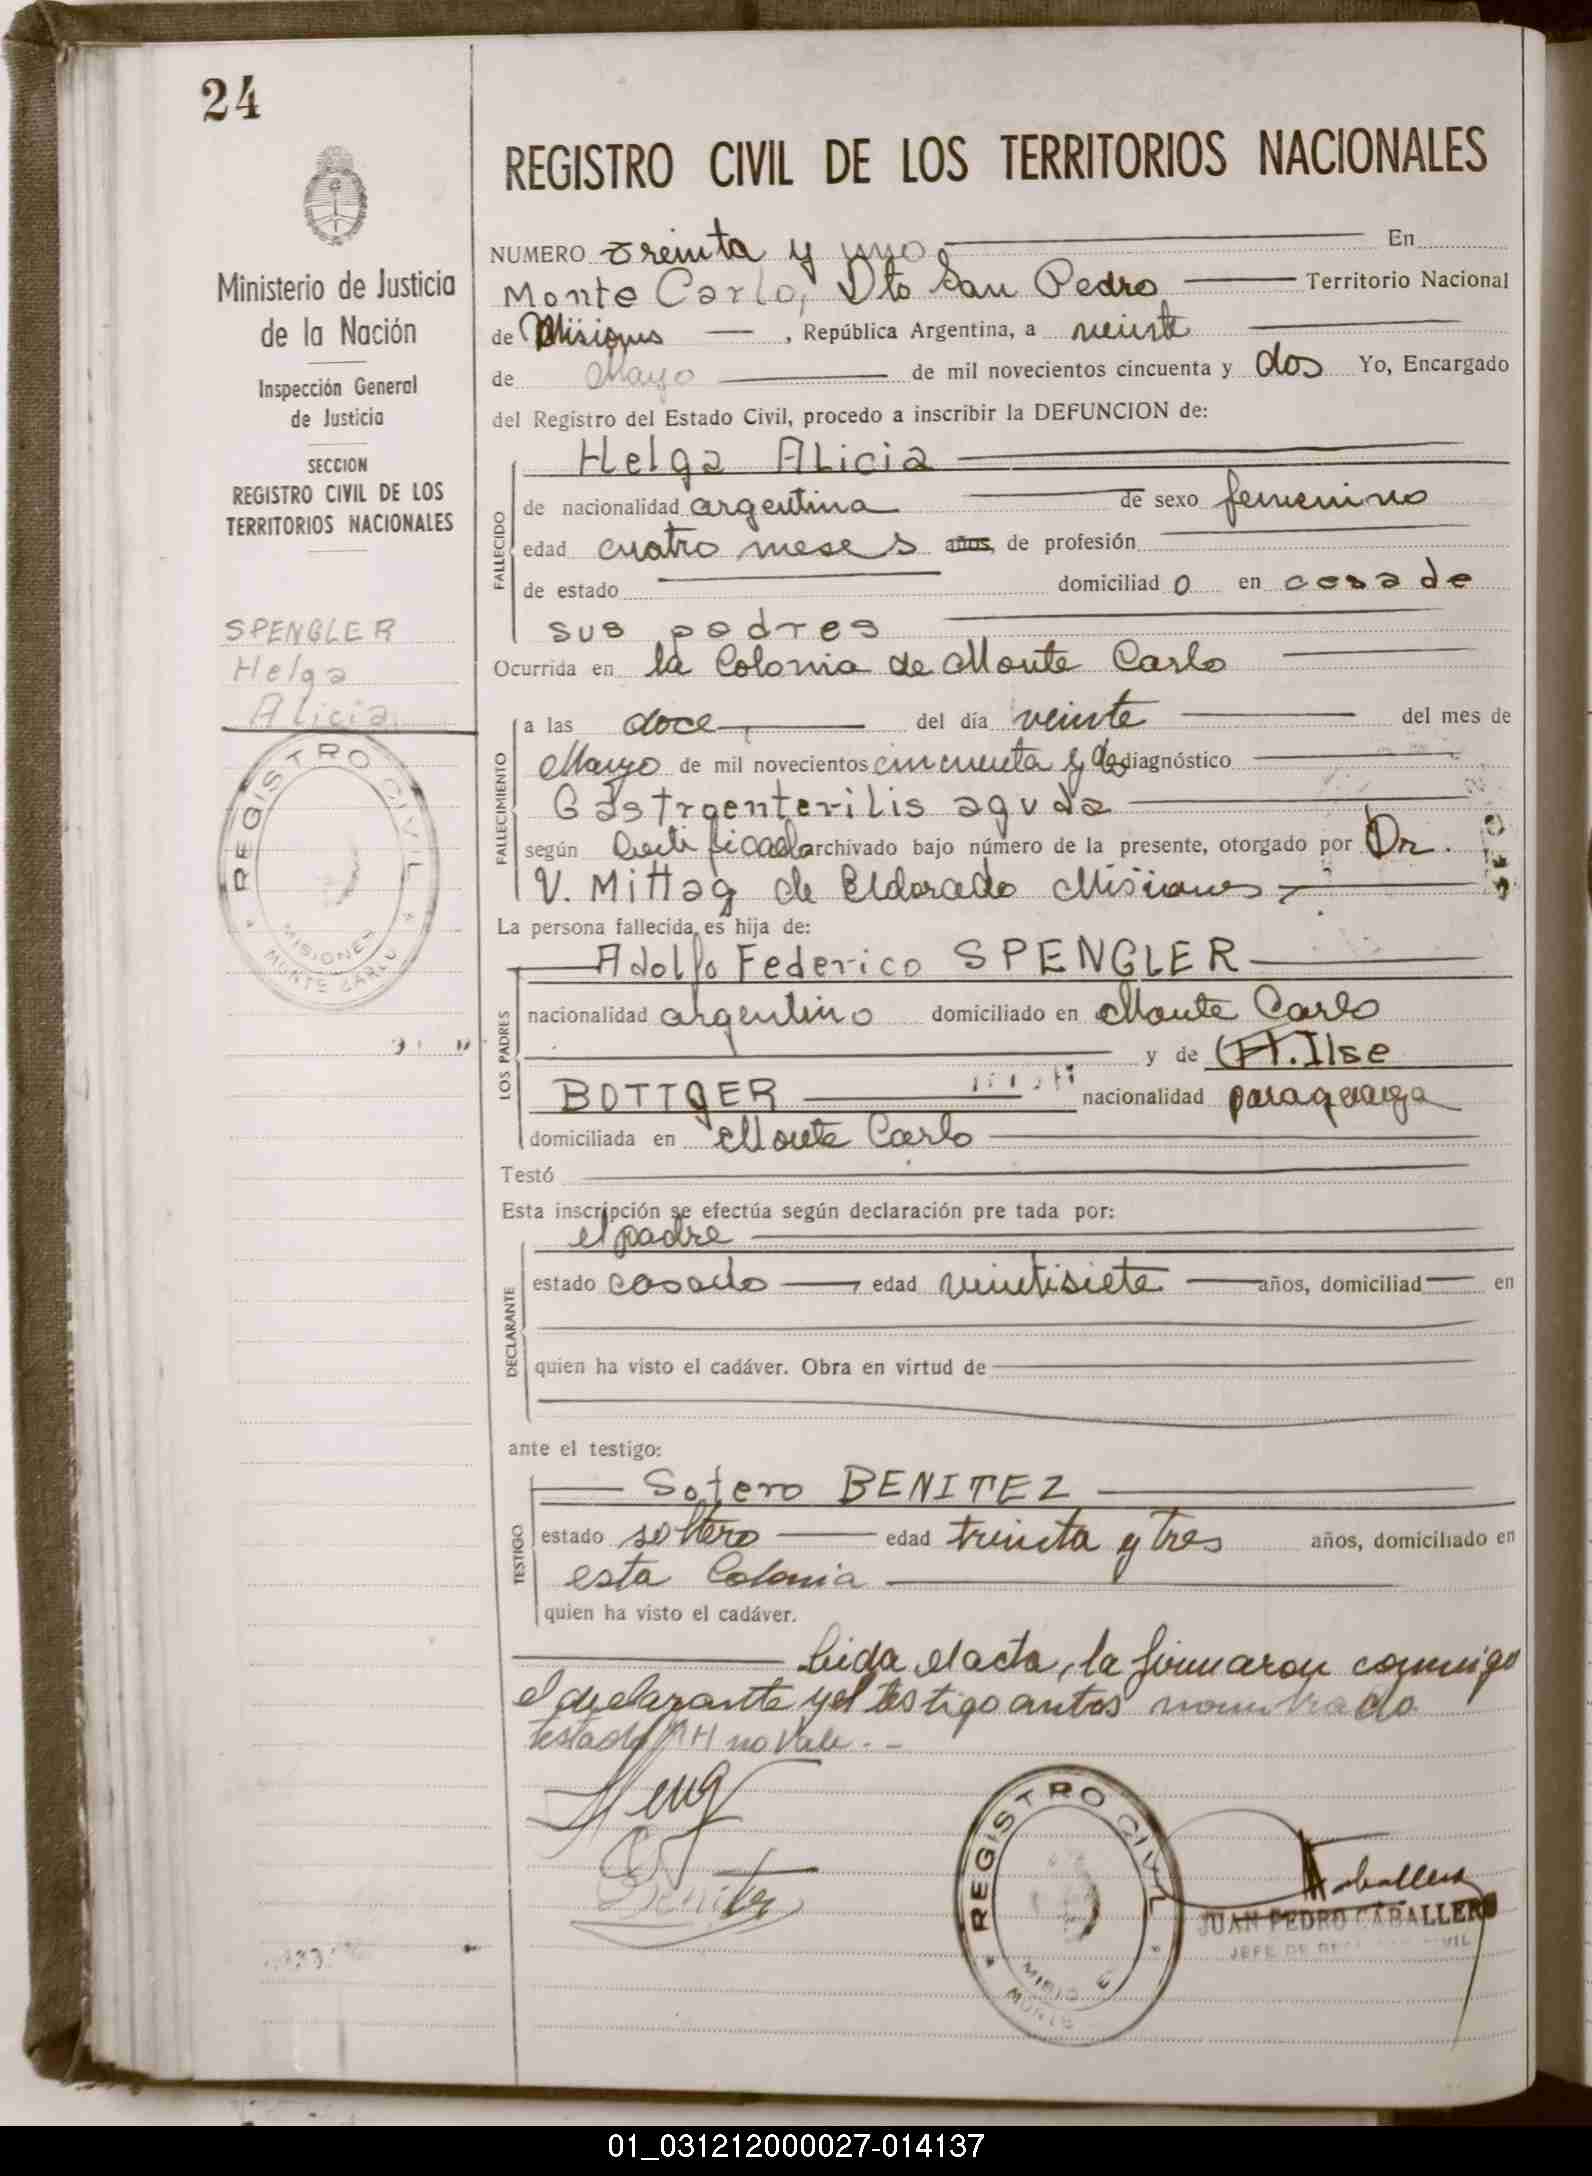 24
REGISTRO CIVIL DE LOS TERRITORIOS NACIONALES
Ministerio de Justicia
de la Nación
Inspección General
de Justicia
SECCION
REGISTRO CIVIL DE LOS
TERRITORIOS NACIONALES
SPENGLER
Helga
Alicia
REGISTRO CIVIL
MISIONES
MONTE CARLO
NUMERO treinta y uno En
Monte Carlo, Dto San Pedro Territorio Nacional
de Misiones, República Argentina, a veinte
de Mayo de mil novecientos cincuenta y dos Yo, Encargado
del Registro del Estado Civil, procedo a inscribir la DEFUNCION de:
FALLECIDO
Helga Alicia
de nacionalidad argentina de sexo femenino
edad cuatro meses años, de profesión
de estado domiciliado en casa de
sus padres
Ocurrida en la Colonia de Monte Carlo
FALLECIMIENTO
a las doce del día veinte del mes de
Mayo de mil novecientos cincuenta y dos diagnóstico
Gastroenterilis aguda
según certificado archivado bajo número de la presente, otorgado por Dr.
V. Mittag de Eldorado Misiones
La persona fallecida, es hija de:
LOS PADRES
Adolfo Federico SPENGLER
nacionalidad argentino domiciliado en Monte Carlo
y de H. Ilse
BOTTGER nacionalidad paraguaya
domiciliada en Monte Carlo
Testó
Esta inscripción se efectúa según declaración pre tada por:
DECLARANTE
el padre
estado casado, edad veintisiete años, domiciliad en
quien ha visto el cadáver. Obra en virtud de
ante el testigo:
TESTIGO
Sotero BENITEZ
estado soltero edad treinta y tres años, domiciliado en
esta Colonia
quien ha visto el cadáver.
Leida el acta, la firmaron conmigo
el declarante y el testigo antes nombrado
testado no vale.-
Benitez
REGISTRO CIVIL
MONTE
Caballero
JUAN PEDRO CABALLERO
JEFE DE
01_031212000027-014137